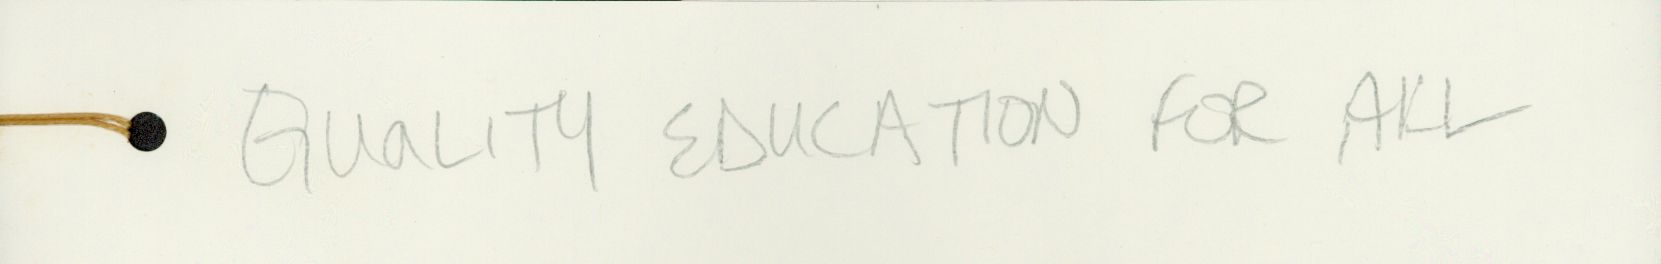 QUALITY EDUCATION FOR ALL